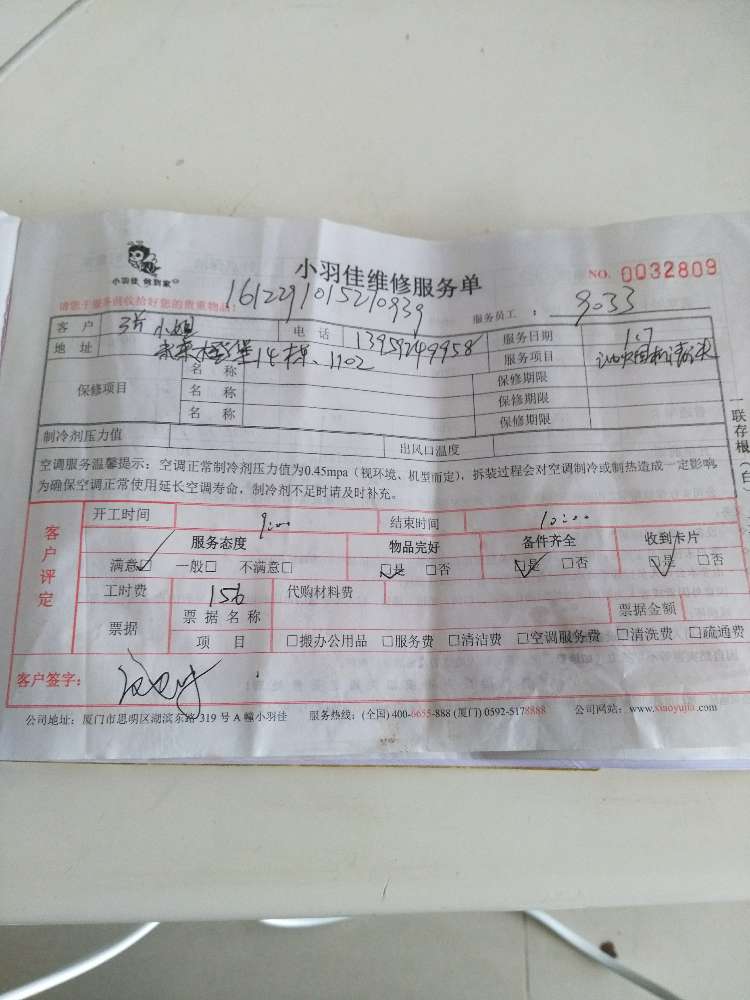 小羽佳 做到家
小羽佳维修服务单
NO. 0032809
请您于服务前收拾好您的贵重物品!
1612291015210939
服务员工 : 9033
客户 小姐 电话 13959249958 服务日期 1.7
地址 14栋、1102 服务项目 清洗
保修项目 名称 保修期限
名称 保修期限
名称 保修期限
制冷剂压力值 出风口温度
空调服务温馨提示:空调正常制冷剂压力值为0.45mpa(视环境、机型而定),拆装过程会对空调制冷或制热造成一定影响,
为确保空调正常使用延长空调寿命,制冷剂不足时请及时补充。
一联存根(白
客户评定
开工时间 9:00 结束时间 10:00
服务态度 物品完好 备件齐全 收到卡片
满意□ 一般□ 不满意□ □是 □否 □是 □否 □是 □否
工时费 156 代购材料费
票据 票据名称 票据金额
项目 □搬办公用品 □服务费 □清洁费 □空调服务费 □清洗费 □疏通费
客户签字:
公司地址:厦门市思明区湖滨东路 319 号 A 幢小羽佳 服务热线:(全国) 400-6655-888 (厦门) 0592-5178888 公司网站:www.xiaoyujia.com